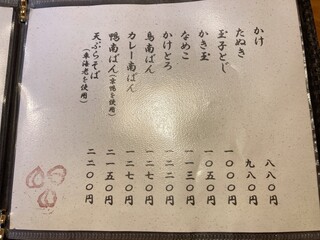 かけ 八八〇円
たぬき 九八〇円
玉子とじ 一〇〇〇円
かき玉 一〇五〇円
なめこ 一一三〇円
かけとろ 一二二〇円
鳥南ばん 一二七〇円
カレー南ばん 一二七〇円
鴨南ばん(合鴨を使用) 二一五〇円
天ぷらそば 二二〇〇円
(車海老を使用)